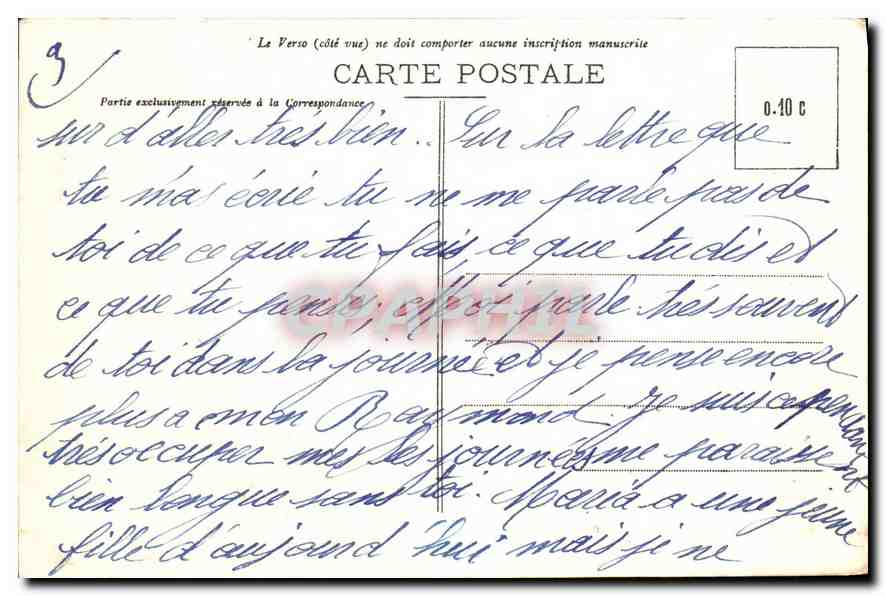 3
Le Verso (côté vue) ne doit comporter aucune inscription manuscrite
CARTE POSTALE
Partie exclusivement réservée à la Correspondance
0.10 C
sur d'aller très bien.. Sur la lettre que
tu m'as écrie tu ne me parle pas de
toi de ce que tu fais, ce que tu dis et
ce que tu penses. Moi parle très souvent
de toi dans la journée et je pense encore
plus a mon Raymond. Je suis cependant
très occuper mes les journées me paraisse
bien longue sans toi. Maria a une jeune
fille d'aujourd'hui mais je ne
GRAPHIL